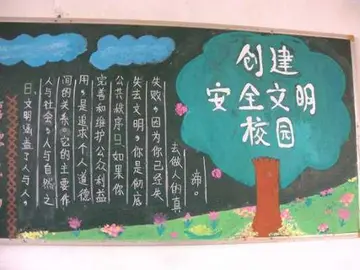 创建
安全文明
校园
日，文明涵盖了人与人，
人与社会，人与自然之
间的关系。它的主要作
用，是追求个人道德
完善和维护公众利益
公共秩序日，如果你
失去文明，你是彻底
失败，因为你已经失
去做人的真
谛。